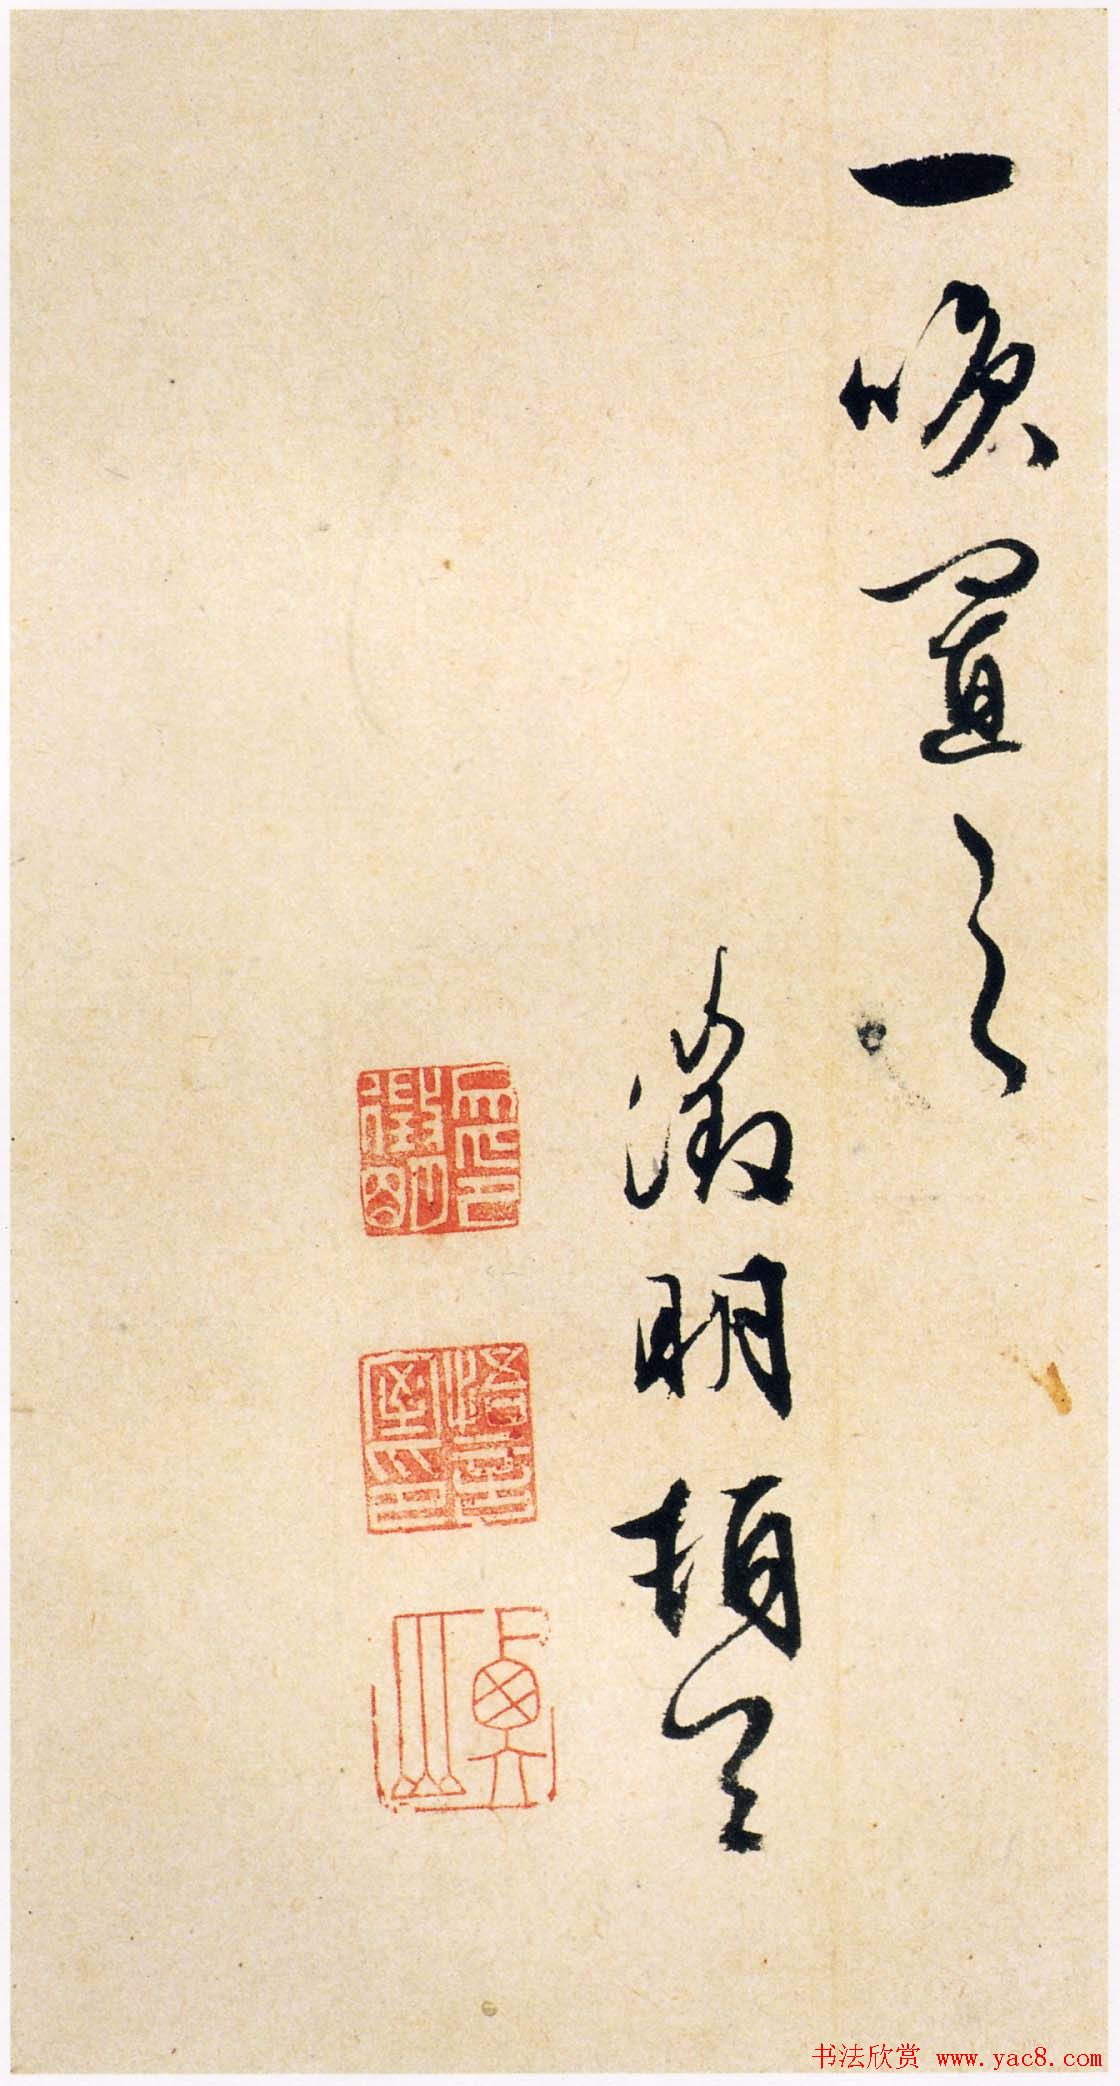 一咲置之
徵明頓首
悟言室印
书法欣赏 www.yac8.com